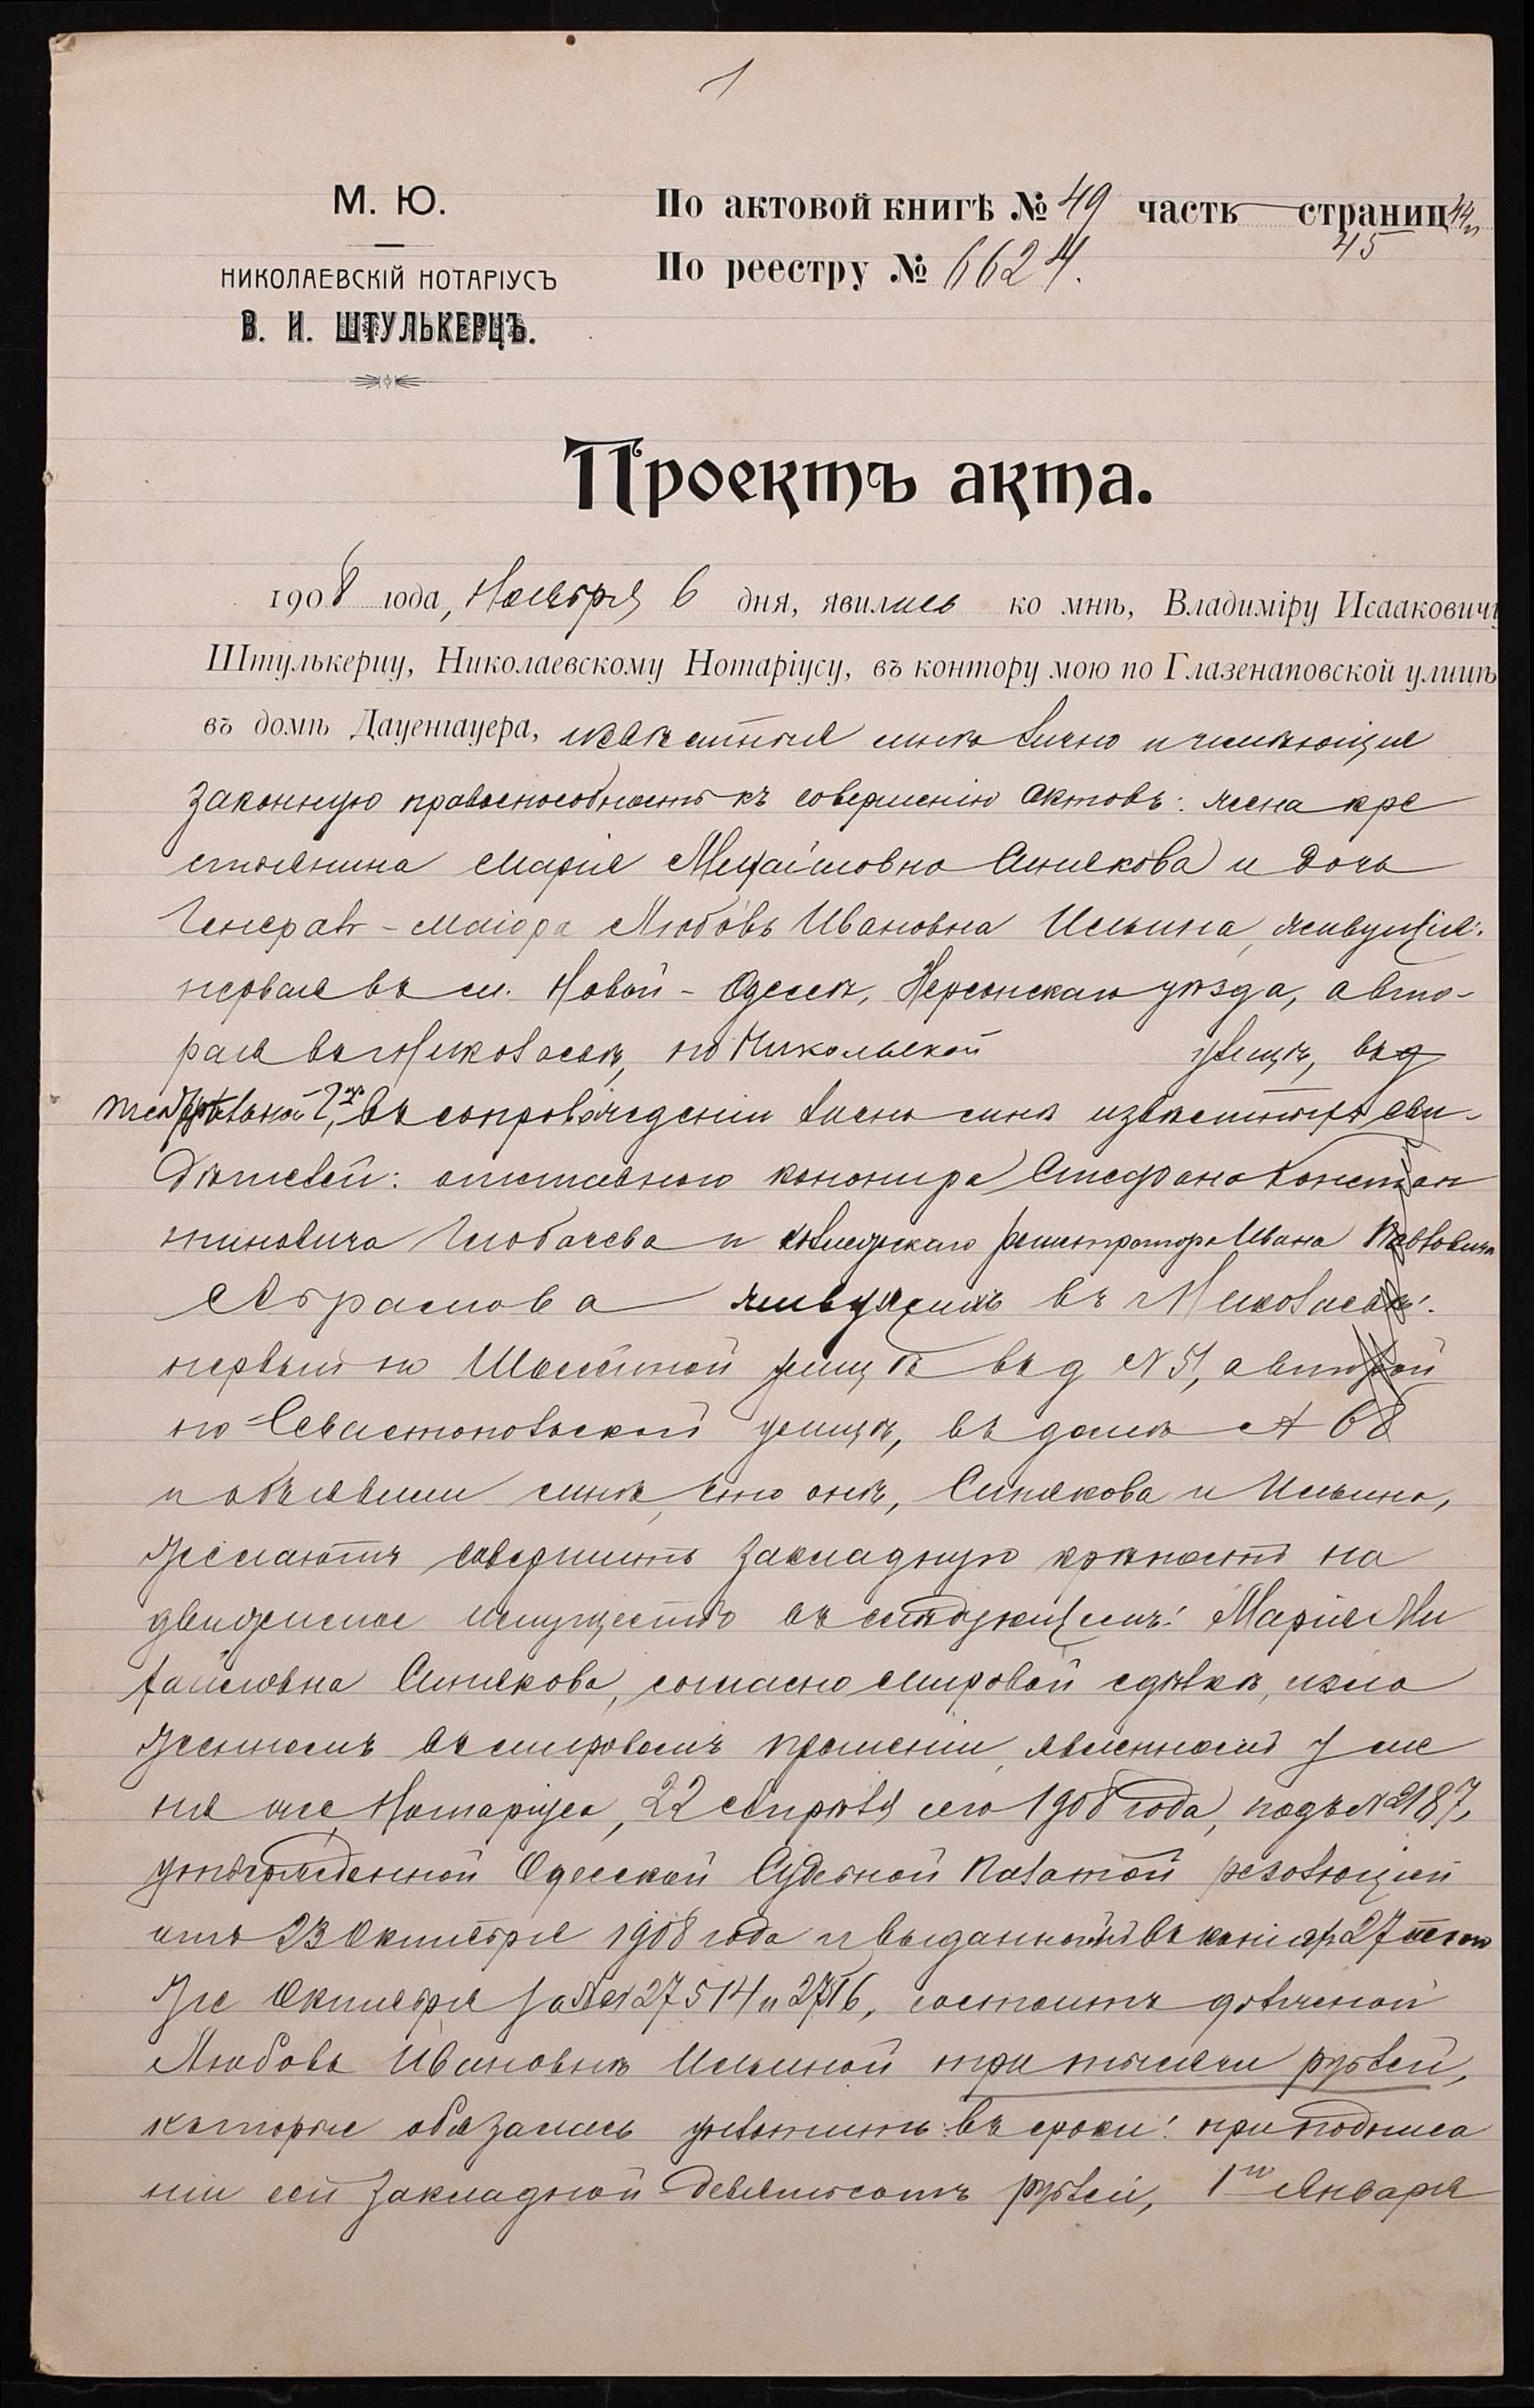 1
М. Ю.
НИКОЛАЕВСКІЙ НОТАРІУСЪ
В. И. ШТУЛЬКЕРЦЪ.
По актовой книгѣ № 49 часть — страниц 44 и
45
По реестру № 6624.
Проектъ акта.
1908 года, Ноября 6 дня, явились ко мнѣ, Владиміру Исааковичу
Штулькерцу, Николаевскому Нотаріусу, въ контору мою по Глазенаповской улицѣ
въ домѣ Дауенгауера, извѣстныя мнѣ лично и имѣющія
законную правоспособность къ совершенію актовъ: жена кре
стьянина Марія Михайловна Синякова и дочь
Генералъ-маіора Любовь Ивановна Ильина, живущія:
первая въ м. Новой-Одессѣ, Херсонскаго уѣзда, а вто-
рая въ Николаевѣ, по Никольской улицѣ, въ д
въ сопровожденіи лично мнѣ извѣстныхъ сви-
дѣтелей: отставного канонира Стефана Констан
тиновича Глобачева и коллежскаго регистратора Ивана Павловича
Абрамова живущихъ въ Николаевѣ:
первый по Шоссейной улицѣ въ д № 51, а второй
по Севастопольской улицѣ, въ домѣ № 68
и объявили мнѣ, что онѣ, Синякова и Ильина,
желаютъ совершить закладную крѣпость на
движимое имущество въ слѣдующемъ: Марія Ми
хайловна Синякова, согласно мировой сдѣлкѣ, изло
женномъ въ мировомъ прошеніи, явленной у ме
ня же Нотаріуса, 22 Апрѣля сего 1908 года, подъ № 2187,
утвержденной Одесской Судебной Палатой резолюціей
отъ 23 Октября 1908 года и выданной въ копіяхъ 27 того
же Октября за №№ 27514 и 27516, состоитъ должной
Любовь Ивановнѣ Ильиной три тысячи рублей,
которые обязалась уплатить въ сроки: при подписа
ніи сей закладной девятьсотъ рублей, 1го Января